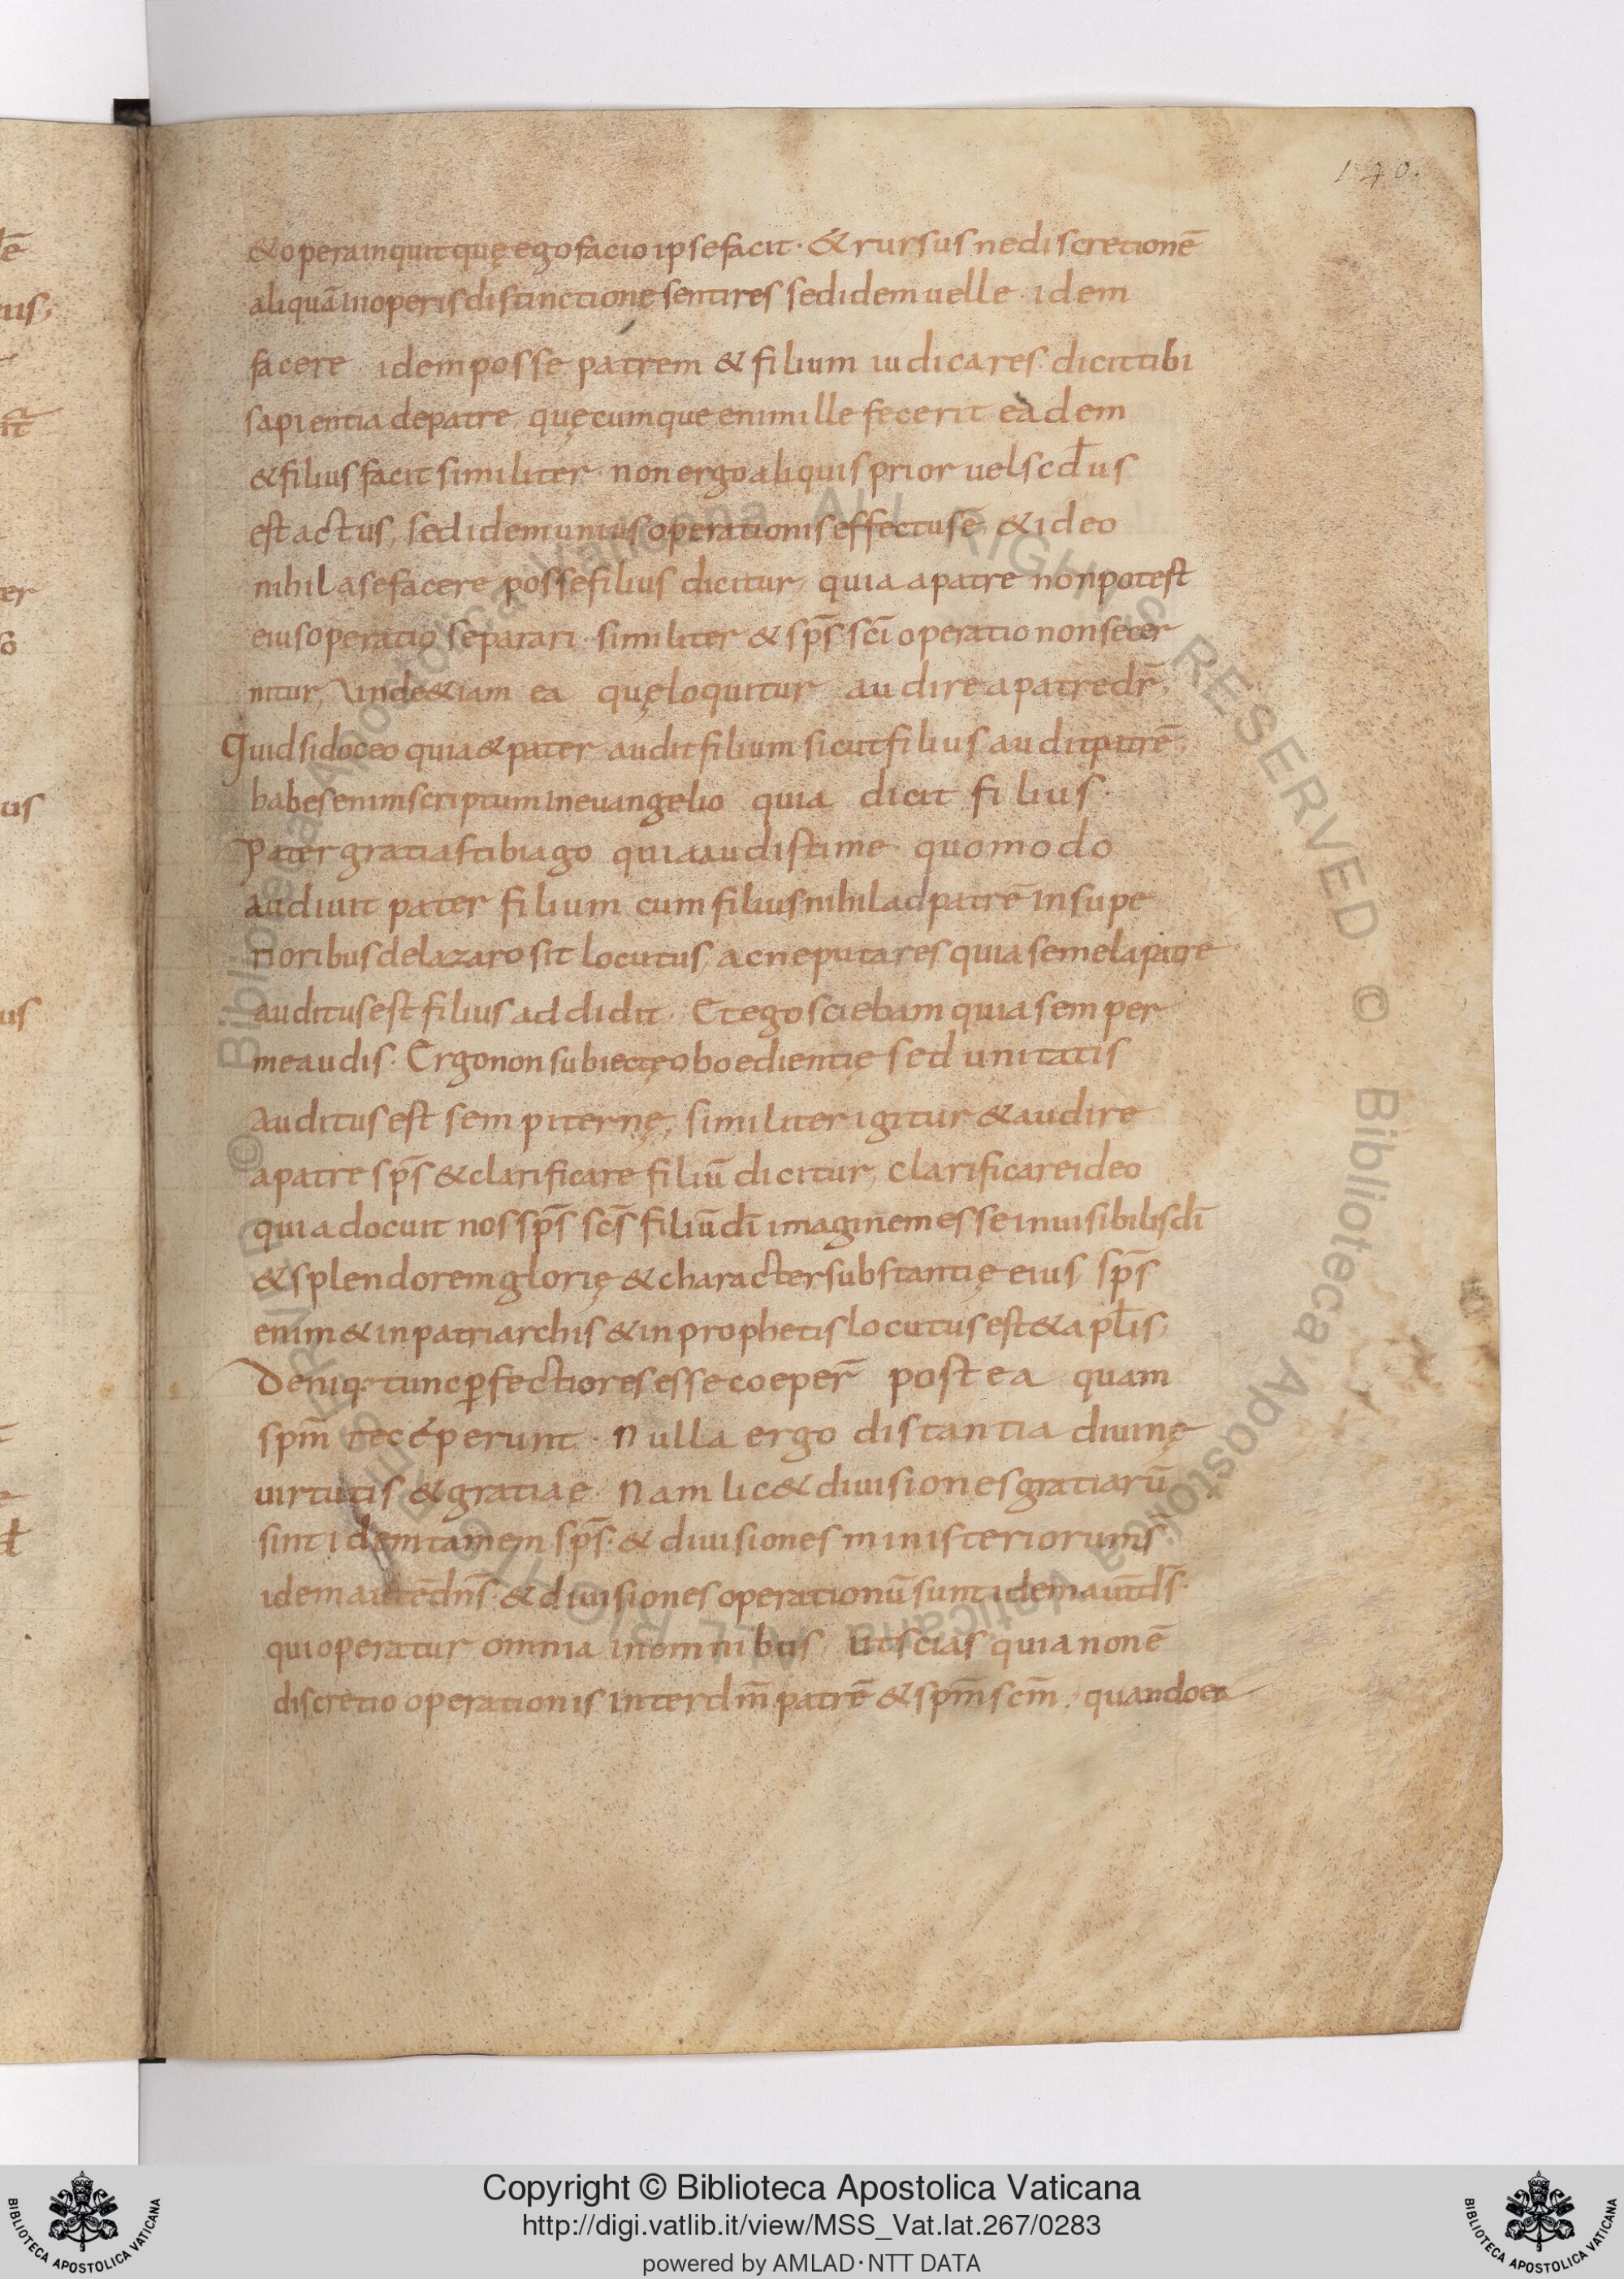 140.
& opera inquit quę ego facio ipse facit· & rursus ne discretionē
aliquā in operis distinctione sentires sed idem uelle· idem
facere· idem posse patrem & filium iudicares· dicit tibi
sapientia de patre, quęcumque enim ille fecerit eadem
& filius facit similiter· non ergo aliquis prior uel scd̄us
est actus, sed idem unius operationis effectus ē, & ideo
nihil a se facere posse filius dicitur, quia a patre non potest
eius operatio separari· similiter & sp̄s sc̄i operatio non secer
nitur, Unde &iam ea quę loquitur audire a patre dr̄,
Quid si doceo quia & pater audit filium sicut filius audit patrē,
habes enim scriptum in euangelio quia dicit filius·
Pater gratias tibi ago quia audisti me· quomodo
audiuit pater filium cum filius nihil ad patrē in supe
rioribus de lazaro sit locutus, ac ne putares quia semel a patre
auditus est filius addidit· Et ego sciebam quia semper
me audis· Ergo non subiectę oboedientię sed unitatis
auditus est sempiternę, similiter igitur & audire
a patre sp̄s & clarificare filiū dicitur, clarificare ideo
quia docuit nos sp̄s sc̄s filiū dī imaginem esse inuisibilis dī
& splendorem glorię & character substantię eius, sp̄s
enim & in patriarchis & in prophetis locutus est & apl̄is,
Deniq· tunc ꝑfectiores esse coeper̄ postea quam
sp̄m receperunt· Nulla ergo distantia diuinę
uirtutis & gratiae· Nam lic& diuisiones gratiarū
sint idem tamem sp̄s· & diuisiones ministeriorum s
idem autē dn̄s· & diuisiones operationū sunt idem aut̄ ds̄·
qui operatur omnia in omnibus, ut scias quia non ē
discretio operationis inter dm̄ patrē & sp̄m sc̄m· quando ea
Copyright © Biblioteca Apostolica Vaticana
http://digi.vatlib.it/view/MSS_Vat.lat.267/0283
powered by AMLAD·NTT DATA
BIBLIOTECA APOSTOLICA VATICANA
BIBLIOTECA APOSTOLICA VATICANA